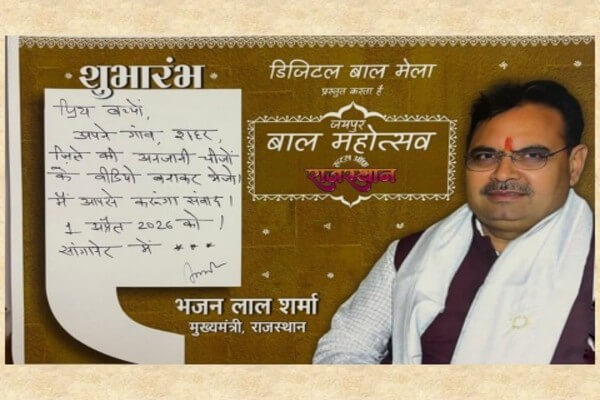 शुभारंभ
प्रिय बच्चों,
अपने गांव, शहर,
जिले की अनजानी चीजों
के वीडियो बनाकर भेजो।
मैं आपसे करूंगा संवाद।
1 अप्रैल 2026 को!
सांगानेर में ***
डिजिटल बाल मेला
प्रस्तुत करता है
जयपुर
बाल महोत्सव
राजस्थान
भजन लाल शर्मा
मुख्यमंत्री, राजस्थान